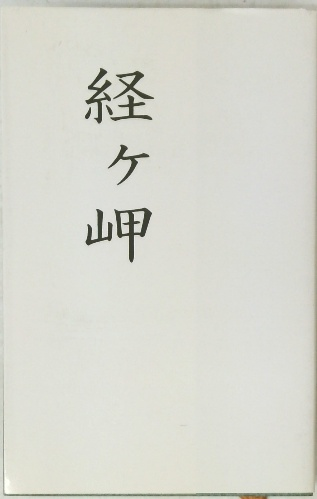 経ヶ岬